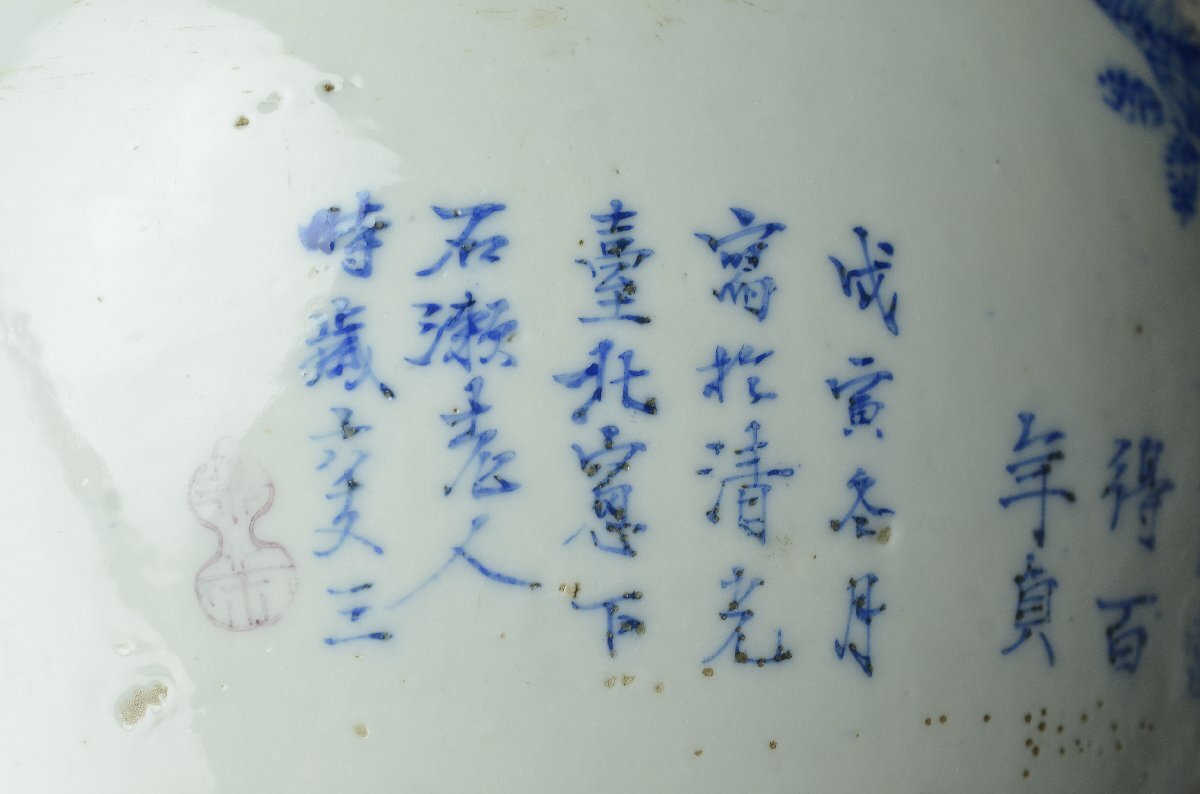 得百
年貞
戊寅冬月
寫於清光
臺北窻下
石瀨老人
時歲六十又三